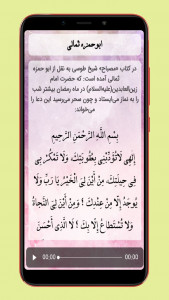 ابوحمزه ثمالی
در کتاب «مصباح» شیخ طوسی به نقل از ابو حمزه
ثمالی آمده است: که حضرت امام
زین‌العابدین(علیه‌السلام) در ماه رمضان بیشتر شب
را به نماز می‌ایستاد و چون سحر می‌رسید این دعا را
می‌خواند:
بِسْمِ اللَّهِ الرَّحْمَنِ الرَّحِيمِ
إِلَهِي لاَ تُؤَدِّبْنِي بِعُقُوبَتِكَ، وَلَا تَمْكُرْ بِي
فِي حِيلَتِكَ، مِنْ أَيْنَ لِيَ الْخَيْرُ يَا رَبِّ وَلَا
يُوجَدُ إِلّا مِنْ عِنْدِكَ ! وَ مِنْ أَيْنَ لِيَ النَّجَاةُ
وَلَا تُسْتَطَاعُ إِلّا بِكَ ! لَا الَّذِي أَحْسَنَ
00:00
00:00